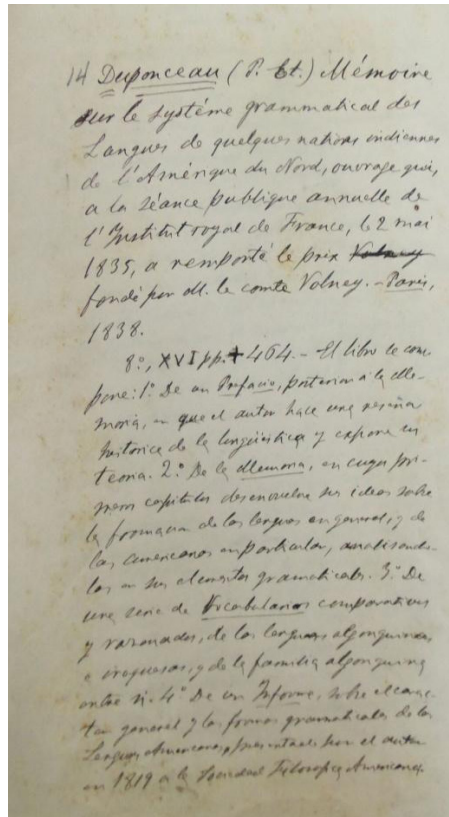 14 Duponceau (P. Et.) Mémoire
sur le système grammatical des
Langues de quelques nations indiennes
de l'Amérique du Nord, ouvrage qui,
a la séance publique annuelle de
l'Institut royal de France, le 2 mai
1835, a remporté le prix Volney
fondé par M. le comte Volney. - Paris,
1838.
8º., XVI pp. + 464. - El libro se com-
pone: 1º De un Prefacio, posterior á la Me-
moria, en que el autor hace una reseña
historica de la lingüistica y expone su
teoria. 2º De la Memoria, en cuyos pri-
meros capitulos desenvuelve sus ideas sobre
la formacion de las lenguas en general, y de
las americanas en particular, analizando-
las en sus elementos gramaticales. 3º De
una serie de Vocabularios comparativos
y razonados, de las lenguas algonquinas
e iroquesas, y de la familia algonquina
entre si. 4º De un Informe, sobre el carac-
ter general y las formas gramaticales de las
Lenguas Americanas, presentado por el autor
en 1819 a la Sociedad Filosofica Americana.